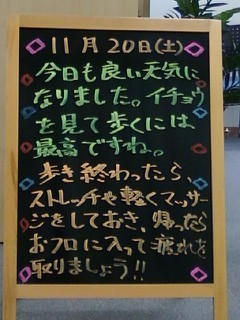 11月20日(土)
今日も良い天気に
なりました。イチョウ
を見て歩くには
最高ですね。
歩き終わったら、
ストレッチや軽くマッサー
ジをしておき、帰ったら
おフロに入って疲れを
取りましょう!!